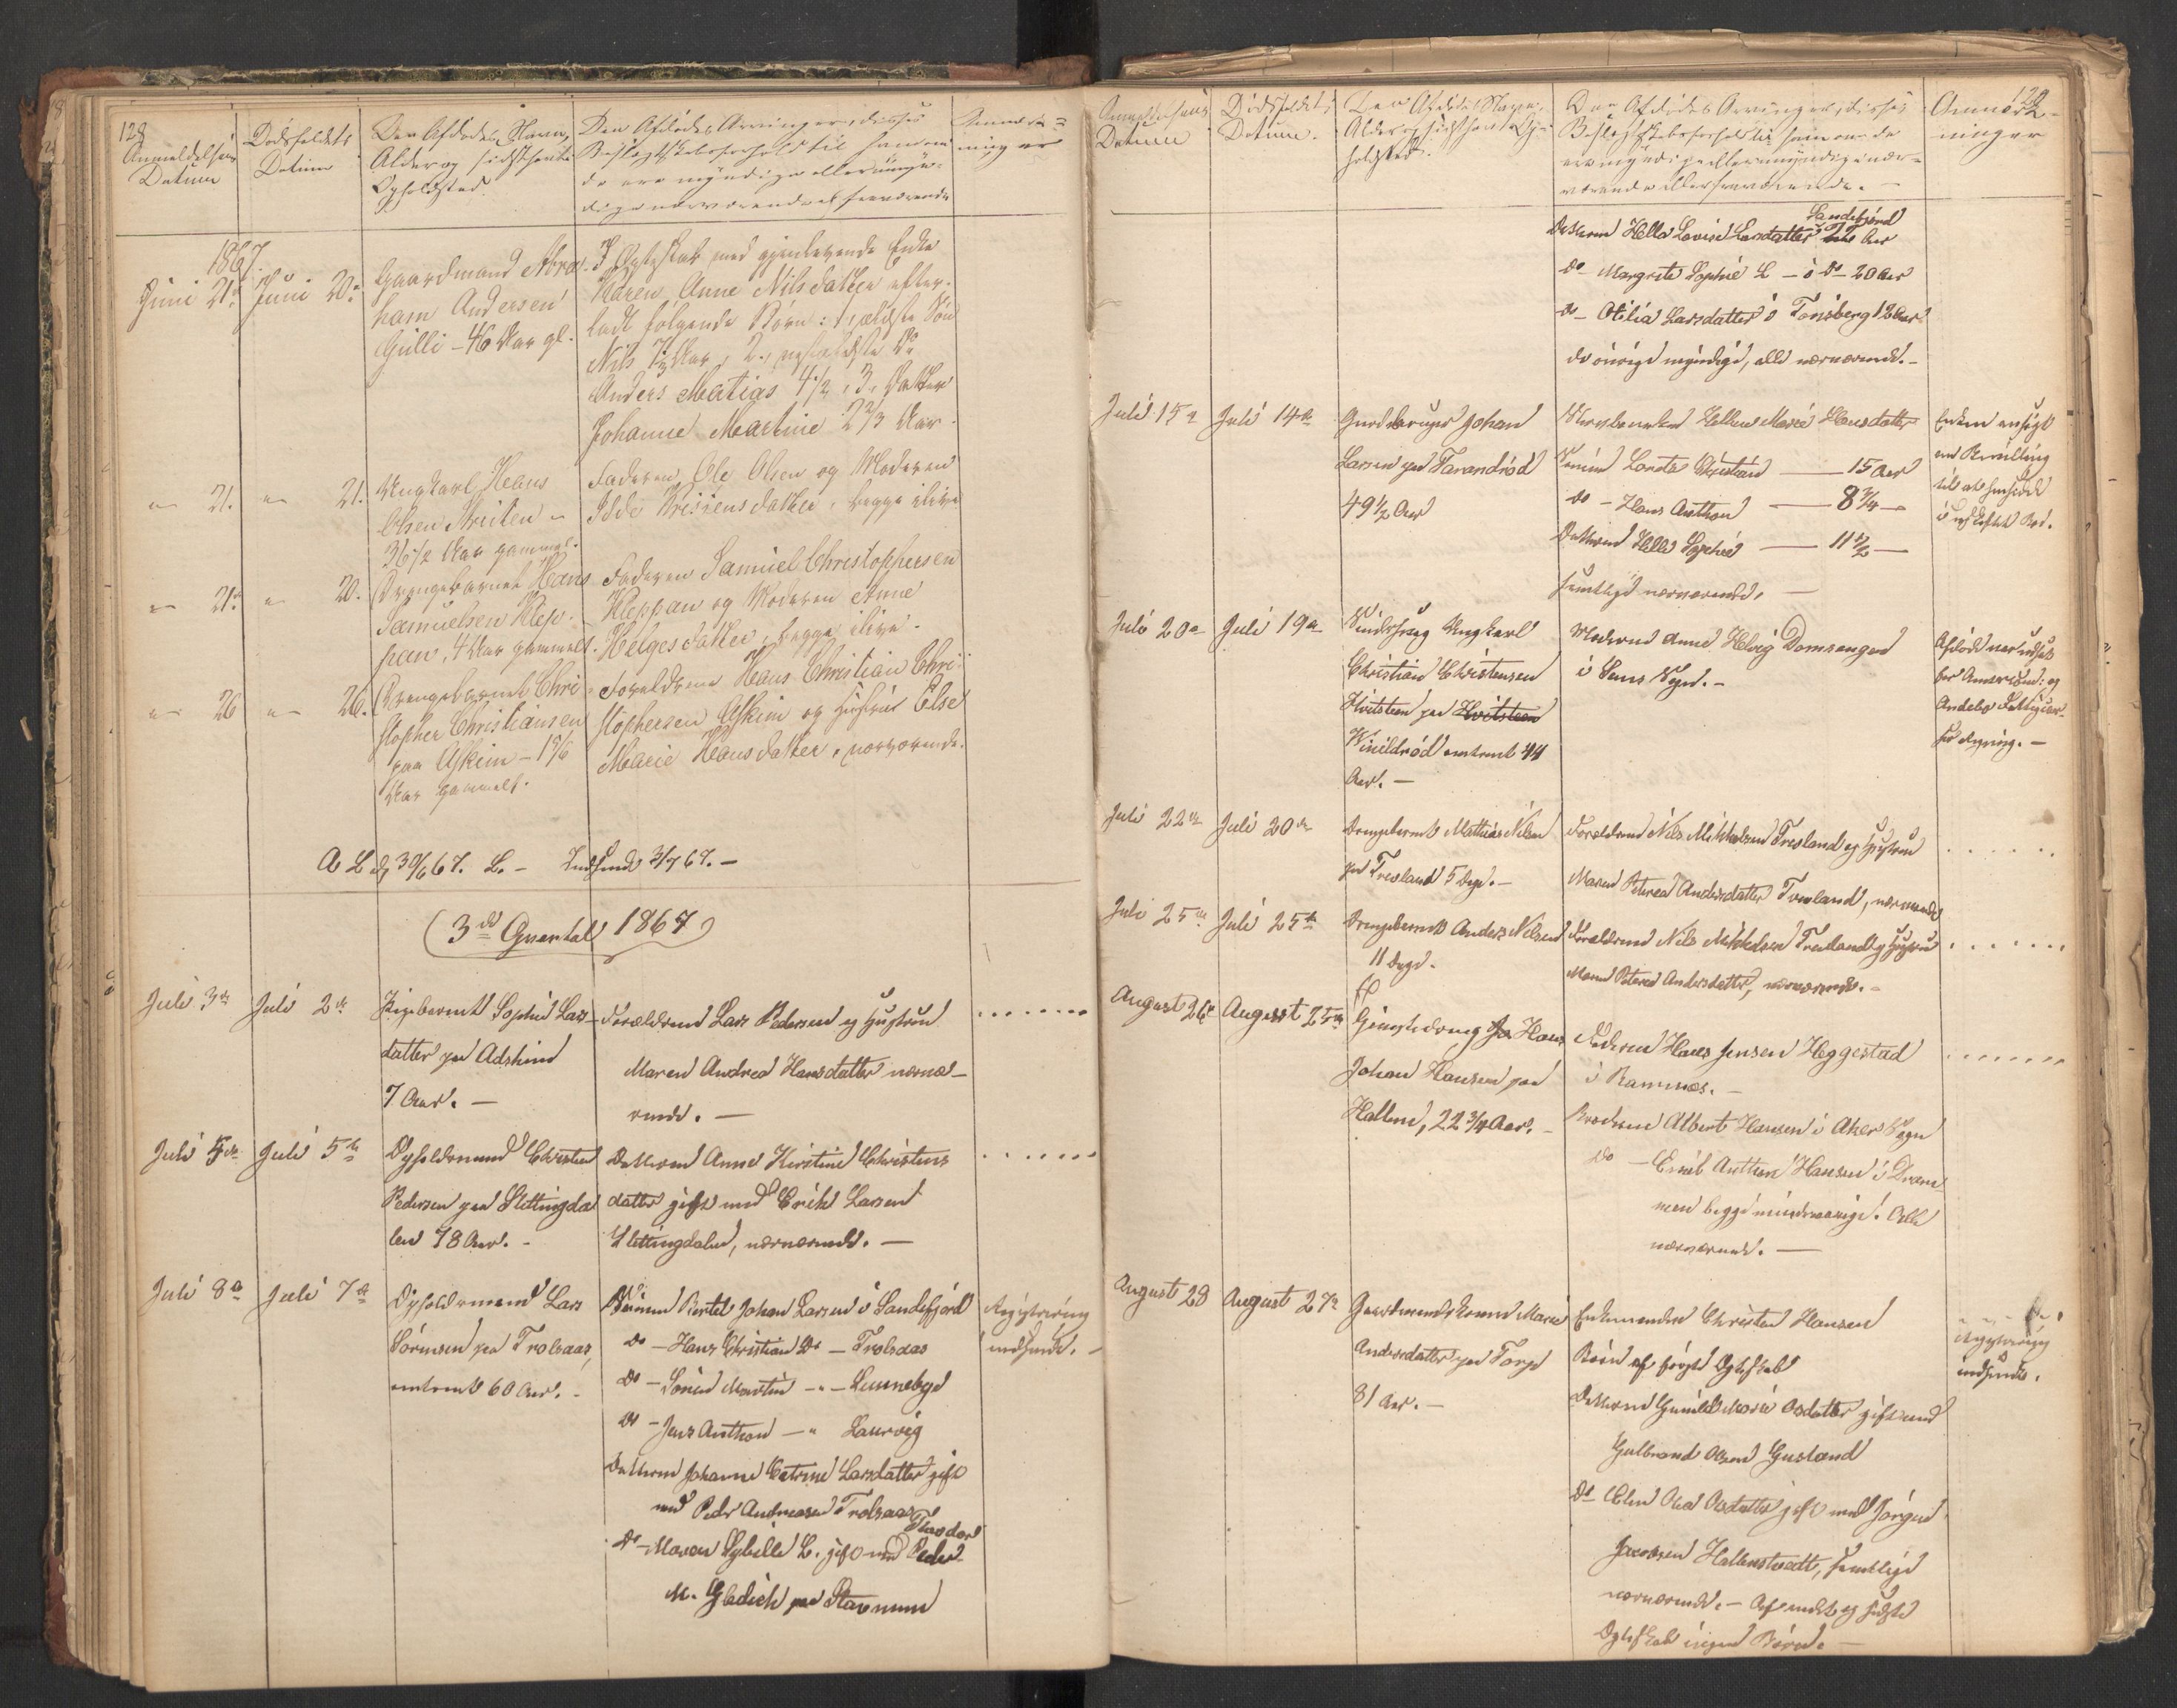 128
Anmeldelsens
Datum
Dødsfaldets
Datum
Den Afdødes Navn,
Alder og sidste
Opholdssted.
Den Afdødes Arvinger, disses
Slægtskabsforhold til ham om
de ere myndige eller umyn-
dige nærværende el fraværende
Anmærk-
ninger
1867.
Juni 21. Juni 20.
Gaardmand Abra-
ham Andersen
Gulli - 46 Aar gl.
I Ægteskab med gjenlevende Enke
Karen Anne Nilsdatter efter-
ladt følgende Børn: 1, ældste Søn
Nils 7½ Aar, 2., næstældste Do
Anders Matias 4½, 3, Datter
Johanne Martine 2 2/3 Aar.
" 21. " 21.
Ungkarl Hans
Olsen
36½ Aar gammel.
Faderen Ole Olsen og Moderen
begge ilive
" 21. " 20.
Drengebarnet Hans
Samuelsen Klep-
pan, 4 Aar gammelt.
Faderen Samuel Christophersen
Kleppan og Moderen Anne
Helgesdatter, begge ilive.
" 26 " 26.
Drengebarnet Chri-
stopher Christiansen
paa Askim - 1 5/6
Aar gammelt.
Forældrene Hans Christian Chri-
stophersen Askim og Hustru Else
Marie Hansdatter, nærværende.
A L d 30/6 67. L. - Indsendt 3/7 67. -
(3die Qvartal 1867)
Juli 3de Juli 2de
Pigebarnet Sophie Lars-
datter paa Adskim
7 Aar. -
Forældrene Lars Pedersen og Hustru
Maren Andrea Hansdatter nærvæ-
rende. -
Juli 5de Juli 5te
Opholdsmand Christen
Pedersen paa Slettingda
len 78 Aar. -
Datteren Anne Kirstine Christens
datter gift med Erik Larsen
Slettingdalen, nærværende. -
Juli 8de Juli 7de
Opholdsmand Lars
Sørensen paa Trolsaas,
omtrent 60 Aar. -
Sønnen Bertel Johan Larsen i Sandefjord
Do - Hans Christian Do - Trolsaas
Do - Søren Martin - " - Lunnebye
Do - Jens Anthon - " Laurvig
Datteren Johanne Catrine Larsdatter gift
med Peder Andreasen Trolsaas
Theodor
Do - Maren Sybille L. gift med Peder
M. Gleditch paa Stavnum
Registrering
indsendt. -
129
Anmeldelsens
Datum
Dødsfaldets
Datum.
Den Afdødes Navn,
Alder og sidste Op-
holdssted.
Den Afdødes Arvinger, disses
Slægtskabsforhold til ham om de
ere myndige eller umyndige nær-
værende eller fraværende. -
Anmærk-
ninger
Sandefjord
Datteren Hella Lovise Larsdatter i Aar
do - Margrete Sophie L - i Do - 20 Aar
do - Otilia Larsdatter i Tønsberg 18 Aar
de øvrige myndige, alle nærværende. -
Juli 15de Juli 14de
Gaardbruger Johan
Larsen paa Tarandrød
49½ Aar
Enken Hellene Marie Hansdatter
Sønnen Lorents Christian - 15 Aar
do - Hans Anthon - 8 3/4 -
Datteren Hella Sophie - 11 ½ -
samtlige nærværende. -
Enken ansøgt
om Bevilling
til at hensidde
i uskiftet Bod.
Juli 20de Juli 19de
Sindssvag Ungkarl
Christian Christensen
Hvitsteen paa Hvitsteen
Virildrød omtrent 44
Aar. -
Moderen Anne Helvig Domsengen
i Sems Sogn. -
Afdøde var udsat
for og
Andebo Fattigvæ-
sens Regning. -
Juli 22de Juli 20de
Drengebarnet Mathias Nilsen
paa Trevland 5 Dage. -
Forældrene Nils Mikkelsen Trevland og Hustru
Maren Petrea Andersdatter Trevland, nærværende
Juli 25de Juli 25de
Drengebarnet Anders Nilsen
11 Dage.
Forældrene Nils Mikkelsen Trevland og Hustru
Maren Petrea Andersdatter, nærværende. -
August 26de August 25de
Hans
Johan Hansen paa
Hallene, 22 3/4 Aar. -
Faderen Hans Jensen Heggestad
i Ramnæs. -
Broderen Albert Hansen i Akers Sogn
Do - Emil Anthon Hansen i Dram-
men begge mindreaarige. Alle
nærværende. -
August 28 August 27de
Gaardmandskone Maria
Andersdatter paa Torp
81 Aar. -
Enkemanden Christen Hansen
Børn af første Ægteskab
Datteren Gunild Marie Osdatter gift med
Gulbrand Olsen Gusland
Do Elen Olea Osdatter gift med Jørgen
Jacobsen Hallenstvedt, samtlige
nærværende. - Af andet og sidste
Ægteskab ingen Børn. -
Registrering
indsendt.